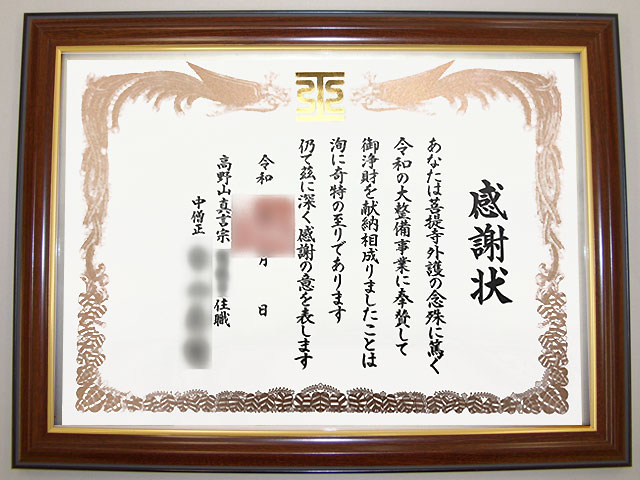 感謝状
あなたは菩提寺外護の念殊に篤く
令和の大整備事業に奉賛して
御浄財を献納相成りましたことは
洵に奇特の至りであります
仍て茲に深く感謝の意を表します
令和 月 日
高野山真言宗 住職
中僧正